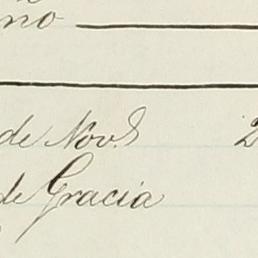 no
de Nov.e 2
de Gracia